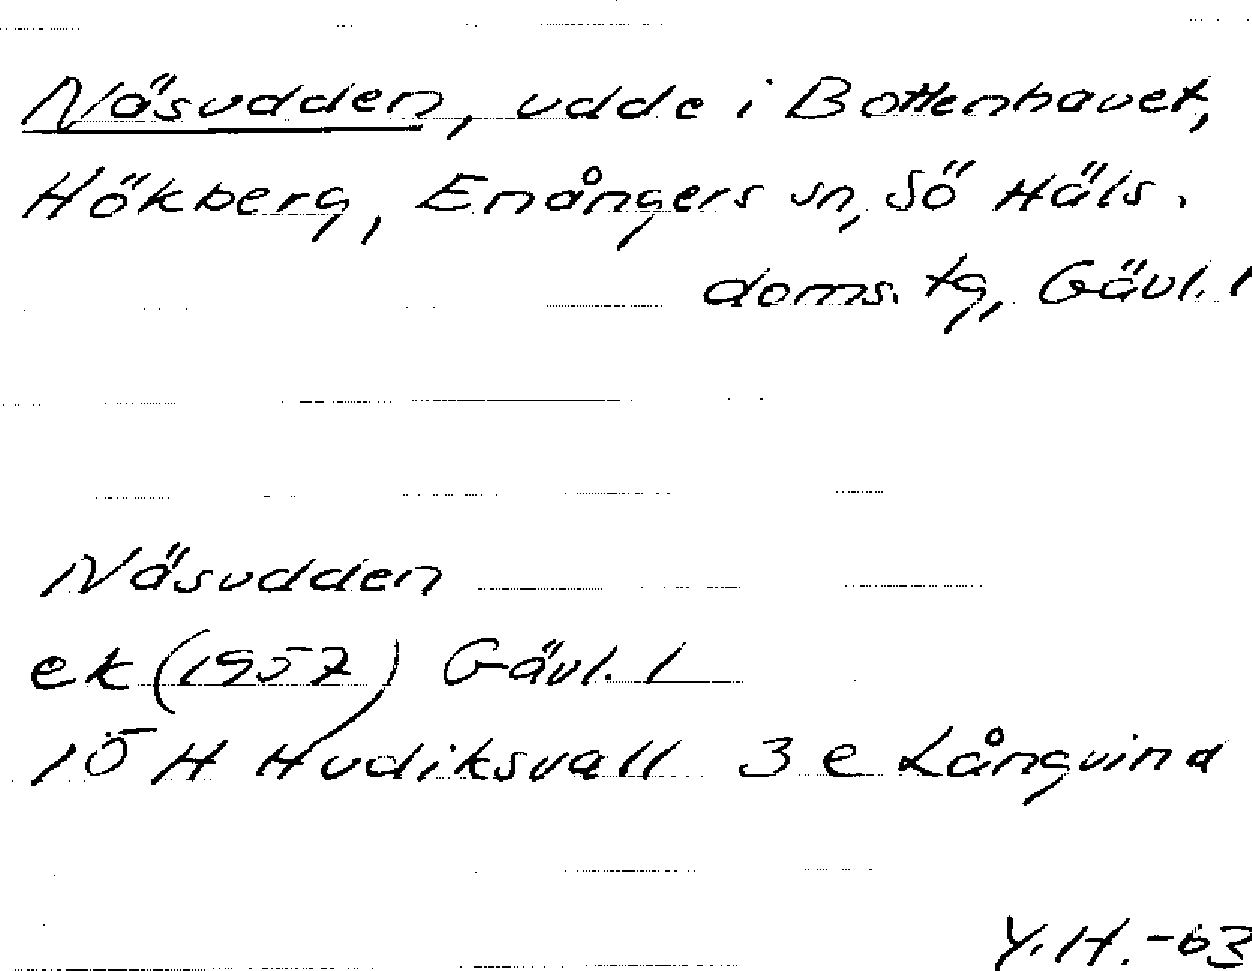 Näsudden, udde i Bottenhavet,
Hökberg, Enångers sn, Sö Häls.
doms. tg, Gävl. l
Näsudden
ek (1957) Gävl. l
15 H Hudiksvall 3 e Långvind
Y.H. -63